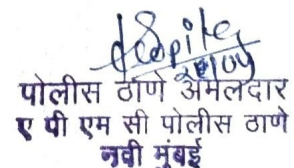 पोलीस ठाणे अमलदार
ए पी एम सी पोलीस ठाणे
नवी मुंबई